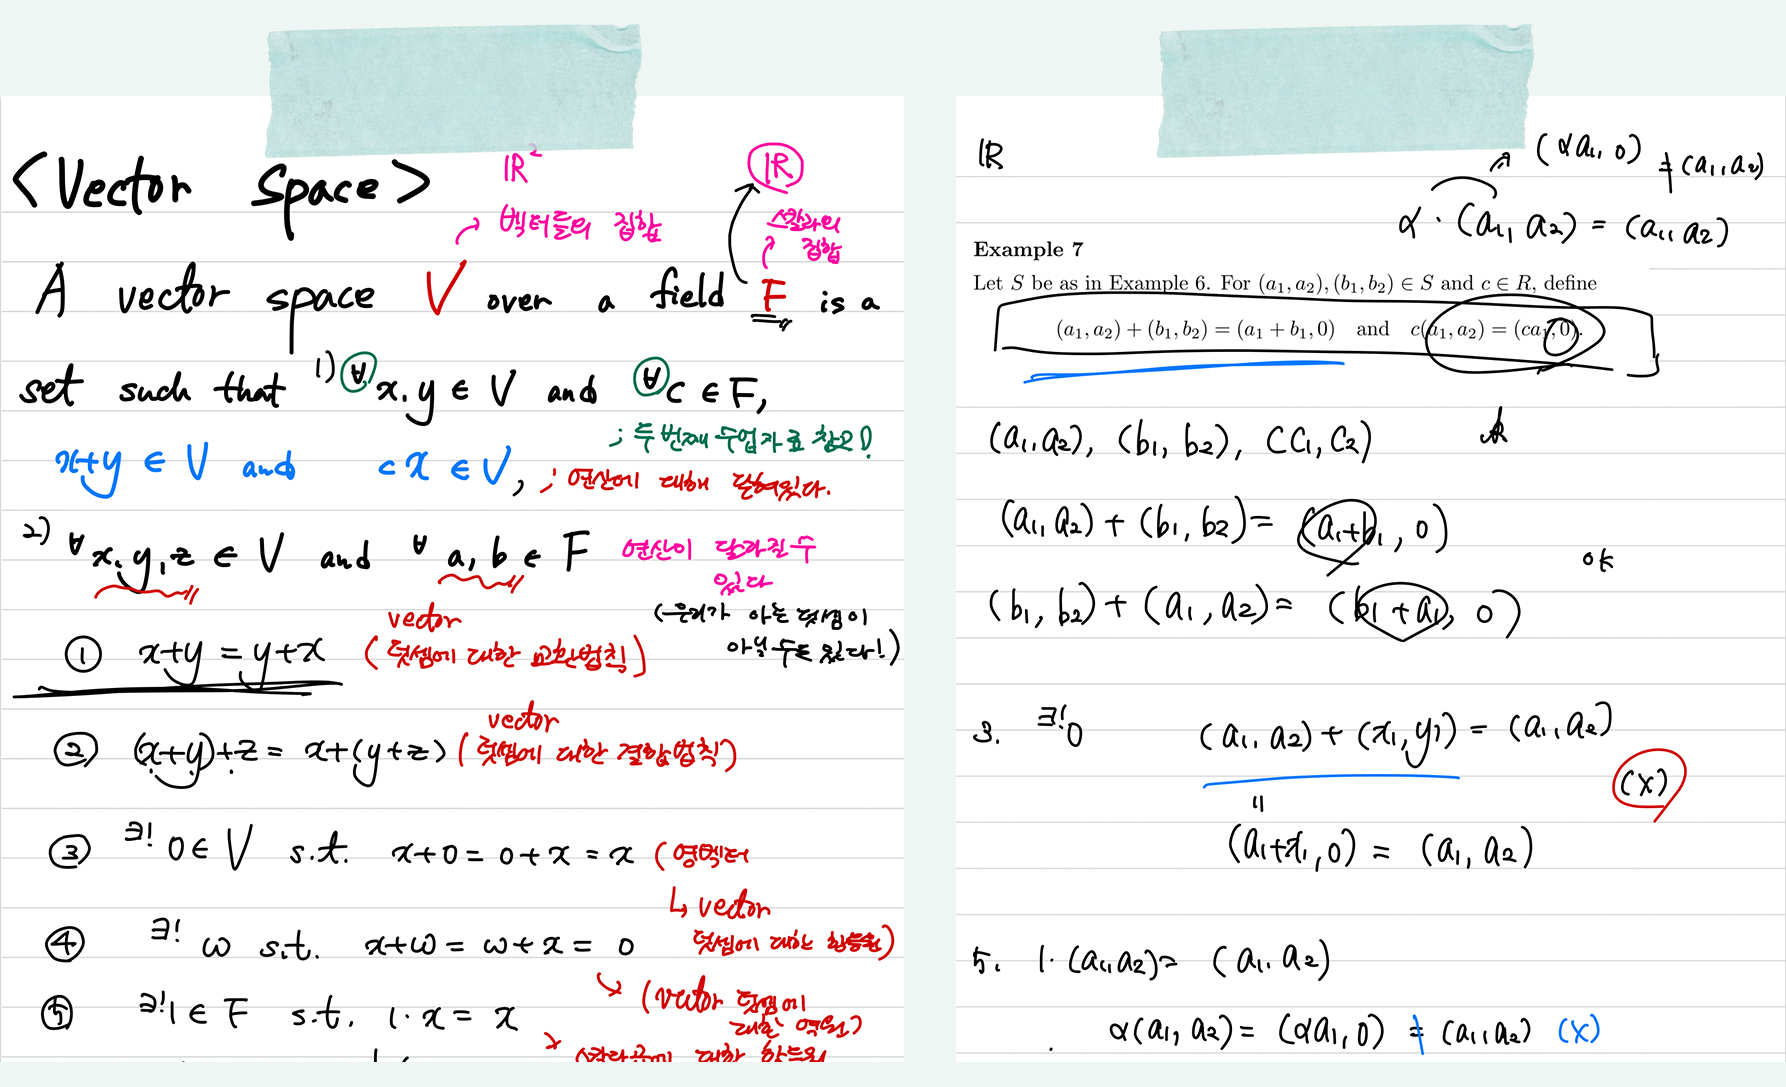 <Vector space>
ℝ²
ℝ
벡터들의 집합
스칼라의
집합
A vector space V over a field F is a
set such that 1) ∀x, y ∈ V and ∀c ∈ F,
; 두번째 수업자료 참고!
x+y ∈ V and cx ∈ V, ; 연산에 대해 닫혀있다.
2) ∀x, y, z ∈ V and ∀a, b ∈ F
연산이 달라질 수
있다
(우리가 아는 덧셈이
아닐 수도 있다!)
① x+y = y+x (vector 덧셈에 대한 교환법칙)
② (x+y)+z = x+(y+z) (vector 덧셈에 대한 결합법칙)
③ ∃! 0 ∈ V s.t. x+0 = 0+x = x (영벡터
↳ vector
덧셈에 대한 항등원)
④ ∃! w s.t. x+w = w+x = 0
↘ (vector 덧셈에
대한 역원)
⑤ ∃! 1 ∈ F s.t. 1·x = x
↘ 스칼라곱에 대한 항등원
ℝ
(αa₁, 0) ≠ (a₁, a₂)
α · (a₁, a₂) = (a₁, a₂)
Example 7
Let S be as in Example 6. For (a₁, a₂), (b₁, b₂) ∈ S and c ∈ R, define
(a₁, a₂) + (b₁, b₂) = (a₁ + b₁, 0) and c(a₁, a₂) = (ca₁, 0).
(a₁, a₂), (b₁, b₂), (c₁, c₂)
(a₁, a₂) + (b₁, b₂) = (a₁+b₁, 0)
ok
(b₁, b₂) + (a₁, a₂) = (b₁+a₁, 0)
3. ∃! 0 (a₁, a₂) + (x₁, y₁) = (a₁, a₂)
(x)
"
(a₁+x₁, 0) = (a₁, a₂)
5. 1·(a₁, a₂) = (a₁, a₂)
α(a₁, a₂) = (αa₁, 0) ≠ (a₁, a₂) (x)